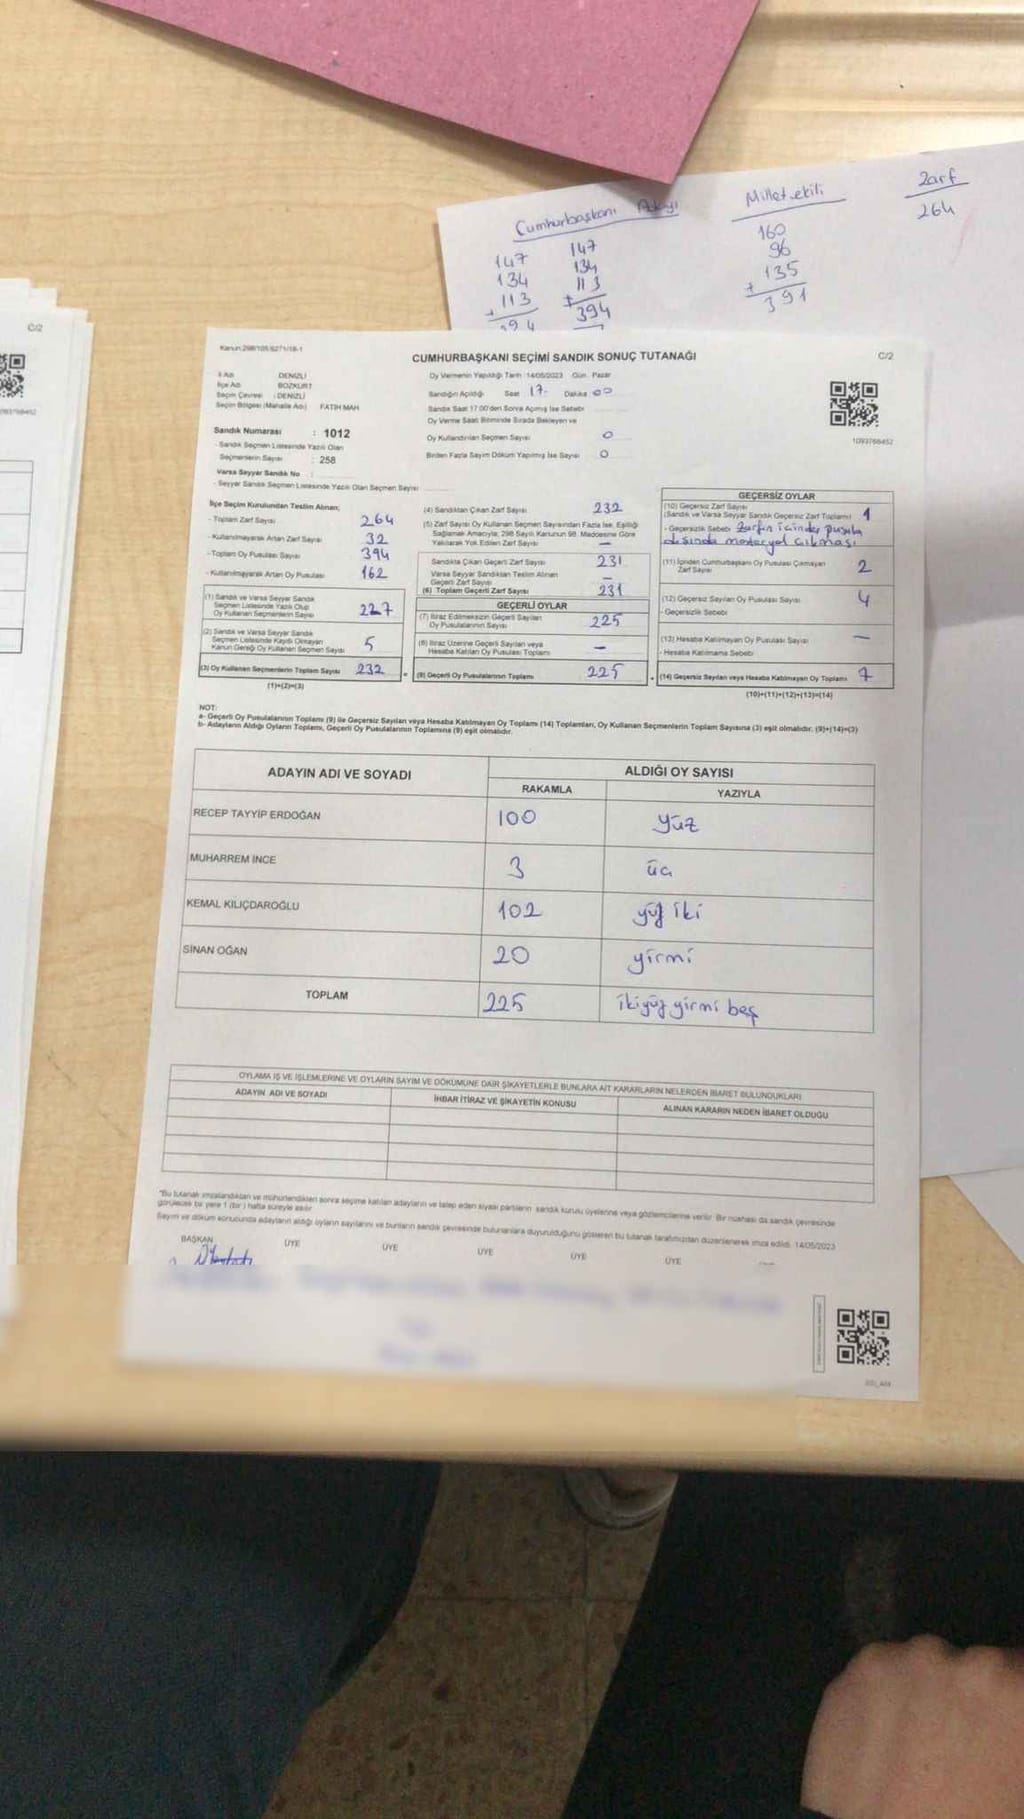 Cumhurbaşkanı Adayı
147
134
+ 113
394
147
134
+ 113
394
Milletvekili
160
96
+ 135
391
Zarf
264
C/2
Kanun:298/105/6271/18-1
CUMHURBAŞKANI SEÇİMİ SANDIK SONUÇ TUTANAĞI
C/2
İl Adı DENİZLİ
İlçe Adı BOZKURT
Seçim Çevresi : DENİZLİ
Seçim Bölgesi (Mahalle Adı) FATİH MAH
Sandık Numarası : 1012
- Sandık Seçmen Listesinde Yazılı Olan
Seçmenlerin Sayısı : 258
Varsa Seyyar Sandık No :
- Seyyar Sandık Seçmen Listesinde Yazılı Olan Seçmen Sayısı
Oy Vermenin Yapıldığı Tarih :14/05/2023 Gün: Pazar
Sandığın Açıldığı Saat 17 Dakika 00
Sandık Saat 17:00'den Sonra Açılmış İse Sebebi
Oy Verme Saati Bitiminde Sırada Bekleyen ve
Oy Kullandırılan Seçmen Sayısı 0
Birden Fazla Sayım Döküm Yapılmış İse Sayısı 0
1093766452
İlçe Seçim Kurulundan Teslim Alınan;
- Toplam Zarf Sayısı 264
- Kullanılmayarak Artan Zarf Sayısı 32
- Toplam Oy Pusulası Sayısı 394
- Kullanılmayarak Artan Oy Pusulası 162
(1) Sandık ve Varsa Seyyar Sandık
Seçmen Listesinde Yazılı Olup
Oy Kullanan Seçmenlerin Sayısı 227
(2) Sandık ve Varsa Seyyar Sandık
Seçmen Listesinde Kaydı Olmayan
Kanun Gereği Oy Kullanan Seçmen Sayısı 5
(3) Oy Kullanan Seçmenlerin Toplam Sayısı 232
(1)+(2)=(3)
(4) Sandıktan Çıkan Zarf Sayısı 232
(5) Zarf Sayısı Oy Kullanan Seçmen Sayısından Fazla İse, Eşitliği
Sağlamak Amacıyla; 298 Sayılı Kanunun 98. Maddesine Göre
Yakılarak Yok Edilen Zarf Sayısı —
Sandıkta Çıkan Geçerli Zarf Sayısı 231
Varsa Seyyar Sandıktan Teslim Alınan
Geçerli Zarf Sayısı —
(6) Toplam Geçerli Zarf Sayısı 231
GEÇERLİ OYLAR
(7) İtiraz Edilmeksizin Geçerli Sayılan
Oy Pusulalarının Sayısı 225
(8) İtiraz Üzerine Geçerli Sayılan veya
Hesaba Katılan Oy Pusulası Toplamı —
(9) Geçerli Oy Pusulalarının Toplamı 225
GEÇERSİZ OYLAR
(10) Geçersiz Zarf Sayısı
(Sandık ve Varsa Seyyar Sandık Geçersiz Zarf Toplamı) 1
- Geçersizlik Sebebi Zarfın içinden pusula
dışında materyal çıkması
(11) İçinden Cumhurbaşkanı Oy Pusulası Çıkmayan
Zarf Sayısı 2
(12) Geçersiz Sayılan Oy Pusulası Sayısı 4
- Geçersizlik Sebebi
(13) Hesaba Katılmayan Oy Pusulası Sayısı —
- Hesaba Katılmama Sebebi
(14) Geçersiz Sayılan veya Hesaba Katılmayan Oy Toplamı 7
(10)+(11)+(12)+(13)=(14)
NOT:
a- Geçerli Oy Pusulalarının Toplamı (9) ile Geçersiz Sayılan veya Hesaba Katılmayan Oy Toplamı (14) Toplamları, Oy Kullanan Seçmenlerin Toplam Sayısına (3) eşit olmalıdır. (9)+(14)=(3)
b- Adayların Aldığı Oyların Toplamı, Geçerli Oy Pusulalarının Toplamına (9) eşit olmalıdır.
ADAYIN ADI VE SOYADI ALDIĞI OY SAYISI
RAKAMLA YAZIYLA
RECEP TAYYİP ERDOĞAN 100 yüz
MUHARREM İNCE 3 üç
KEMAL KILIÇDAROĞLU 102 yüz iki
SİNAN OĞAN 20 yirmi
TOPLAM 225 ikiyüz yirmi beş
OYLAMA İŞ VE İŞLEMLERİNE VE OYLARIN SAYIM VE DÖKÜMÜNE DAİR ŞİKAYETLERLE BUNLARA AİT KARARLARIN NELERDEN İBARET BULUNDUKLARI
ADAYIN ADI VE SOYADI İHBAR İTİRAZ VE ŞİKAYETİN KONUSU ALINAN KARARIN NEDEN İBARET OLDUĞU
*Bu tutanak imzalandıktan ve mühürlendikten sonra seçime katılan adayların ve talep eden siyasi partilerin sandık kurulu üyelerine veya gözlemcilerine verilir. Bir nüshası da sandık çevresinde
görülecek bir yere 1 (bir) hafta süreyle asılır.
Sayım ve döküm sonucunda adayların aldığı oyların sayılarını ve bunların sandık çevresinde bulunanlara duyurulduğunu gösteren bu tutanak tarafımızdan düzenlenerek imza edildi. 14/05/2023
BAŞKAN ÜYE ÜYE ÜYE ÜYE ÜYE